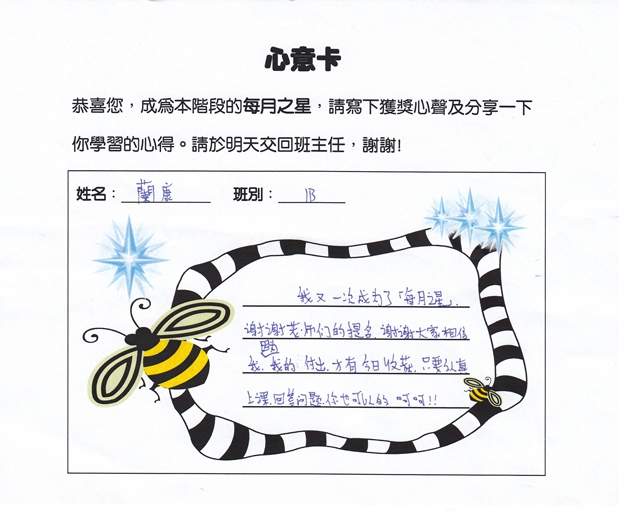 心意卡
恭喜您，成為本階段的每月之星，請寫下獲獎心聲及分享一下
你學習的心得。請於明天交回班主任，謝謝!
姓名：蘭康 班別：1B
我又一次成为了「每月之星」.
谢谢老师们的提名.谢谢大家相信
我.我的付出.才有今日收获.只要认真
上课.回答问题.你也可以的 呵呵!!